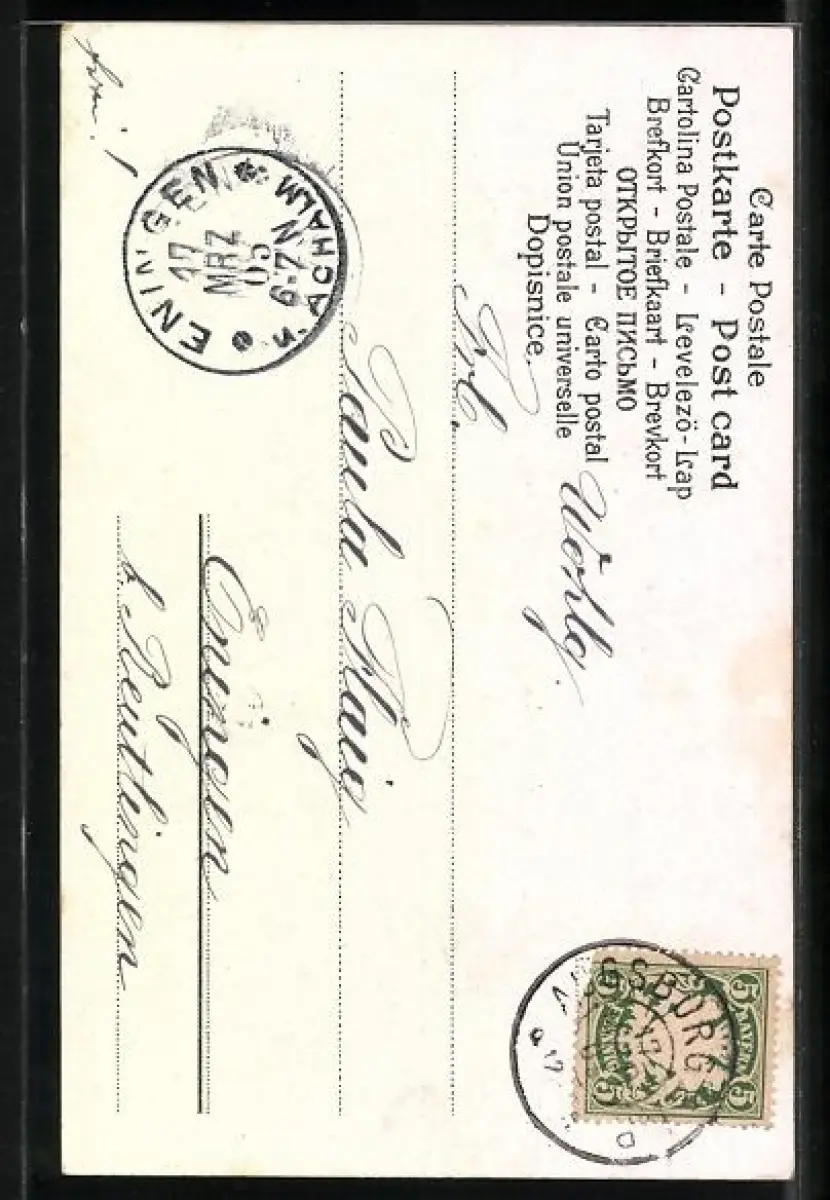 Carte Postale
Postkarte - Post card
Cartolina Postale - Levelezö-Lap
Brefkort - Briefkaart - Brevkort
ОТКРЫТОЕ ПИСЬМО
Tarjeta postal - Carto postal
Union postale universelle
Dopisnice.
Wohlg.
Frl.
Paula Maig
Eningen
b. Reutlingen
ENINGEN
17
MRZ
05
6-7 N
U. ACHALM
AUGSBURG
5 5
5 5
BAYERN